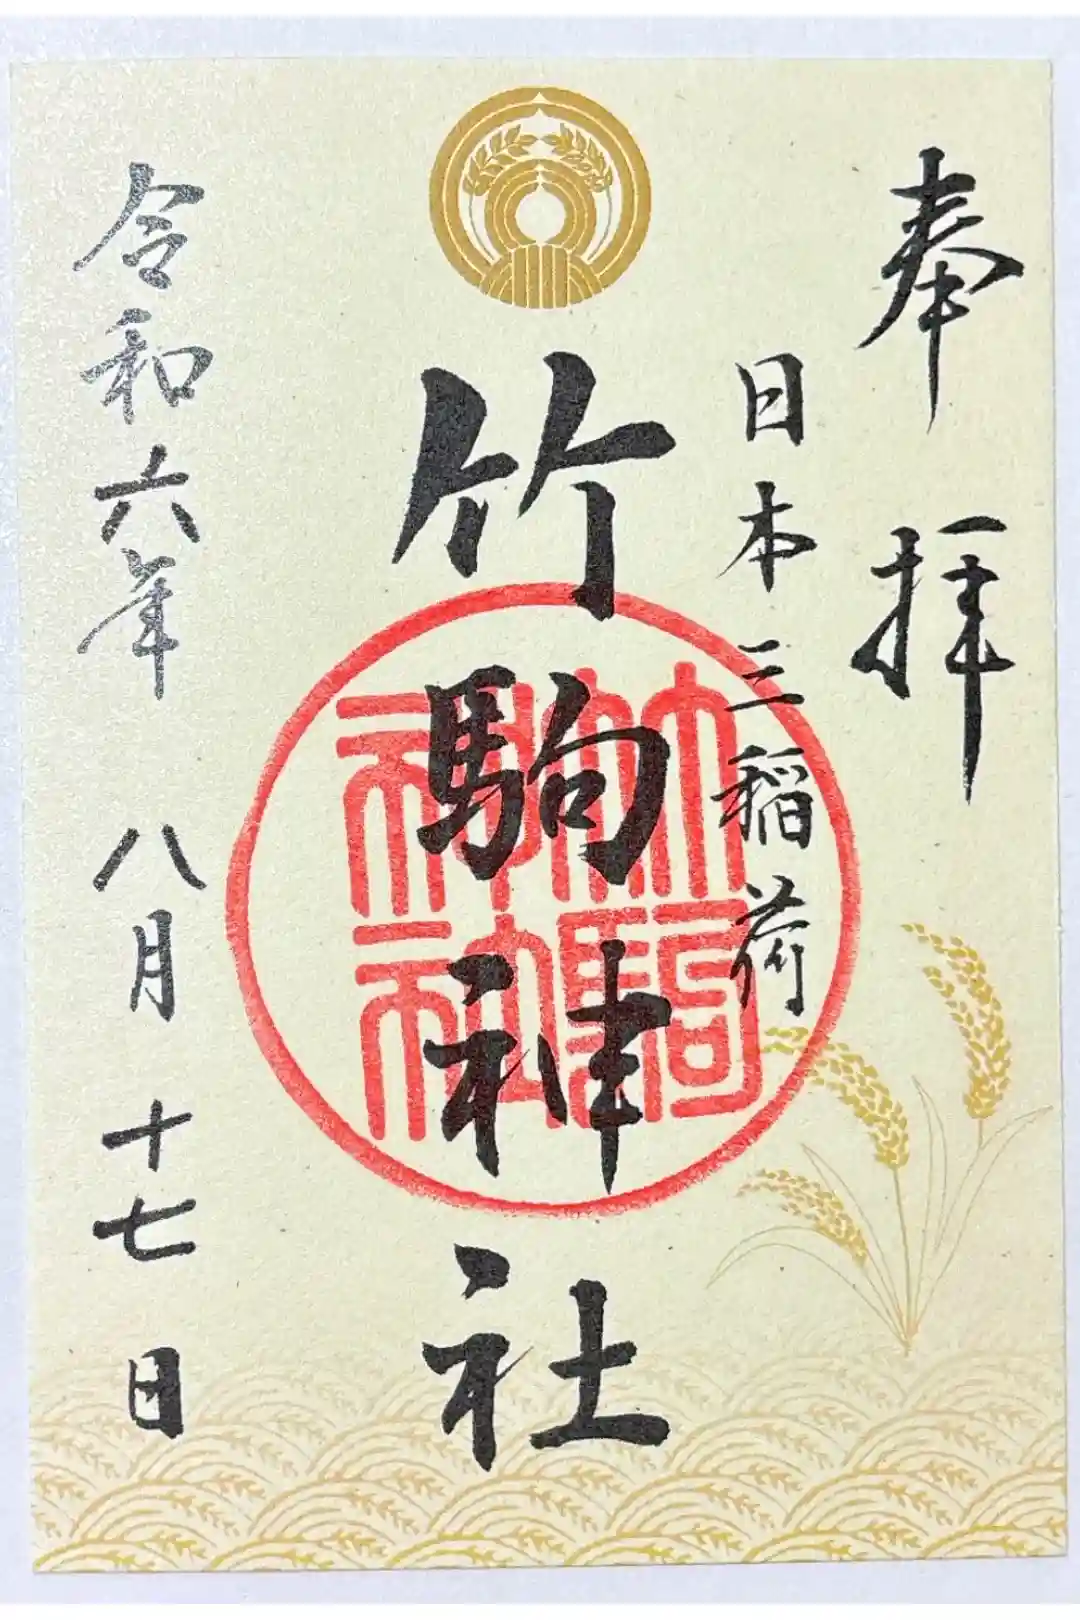 奉拝
日本三稲荷
竹駒神社
竹駒
神社
令和六年 八月十七日